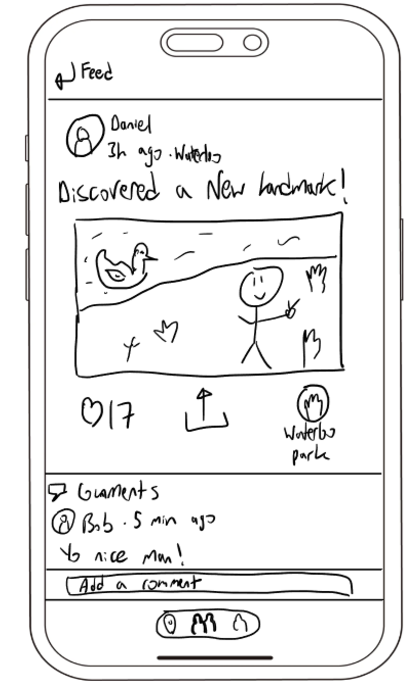 Feed
Daniel
3h ago · Waterloo
Discovered a New landmark!
17
Waterloo
park
Comments
Bob · 5 min ago
Yo nice man!
Add a comment